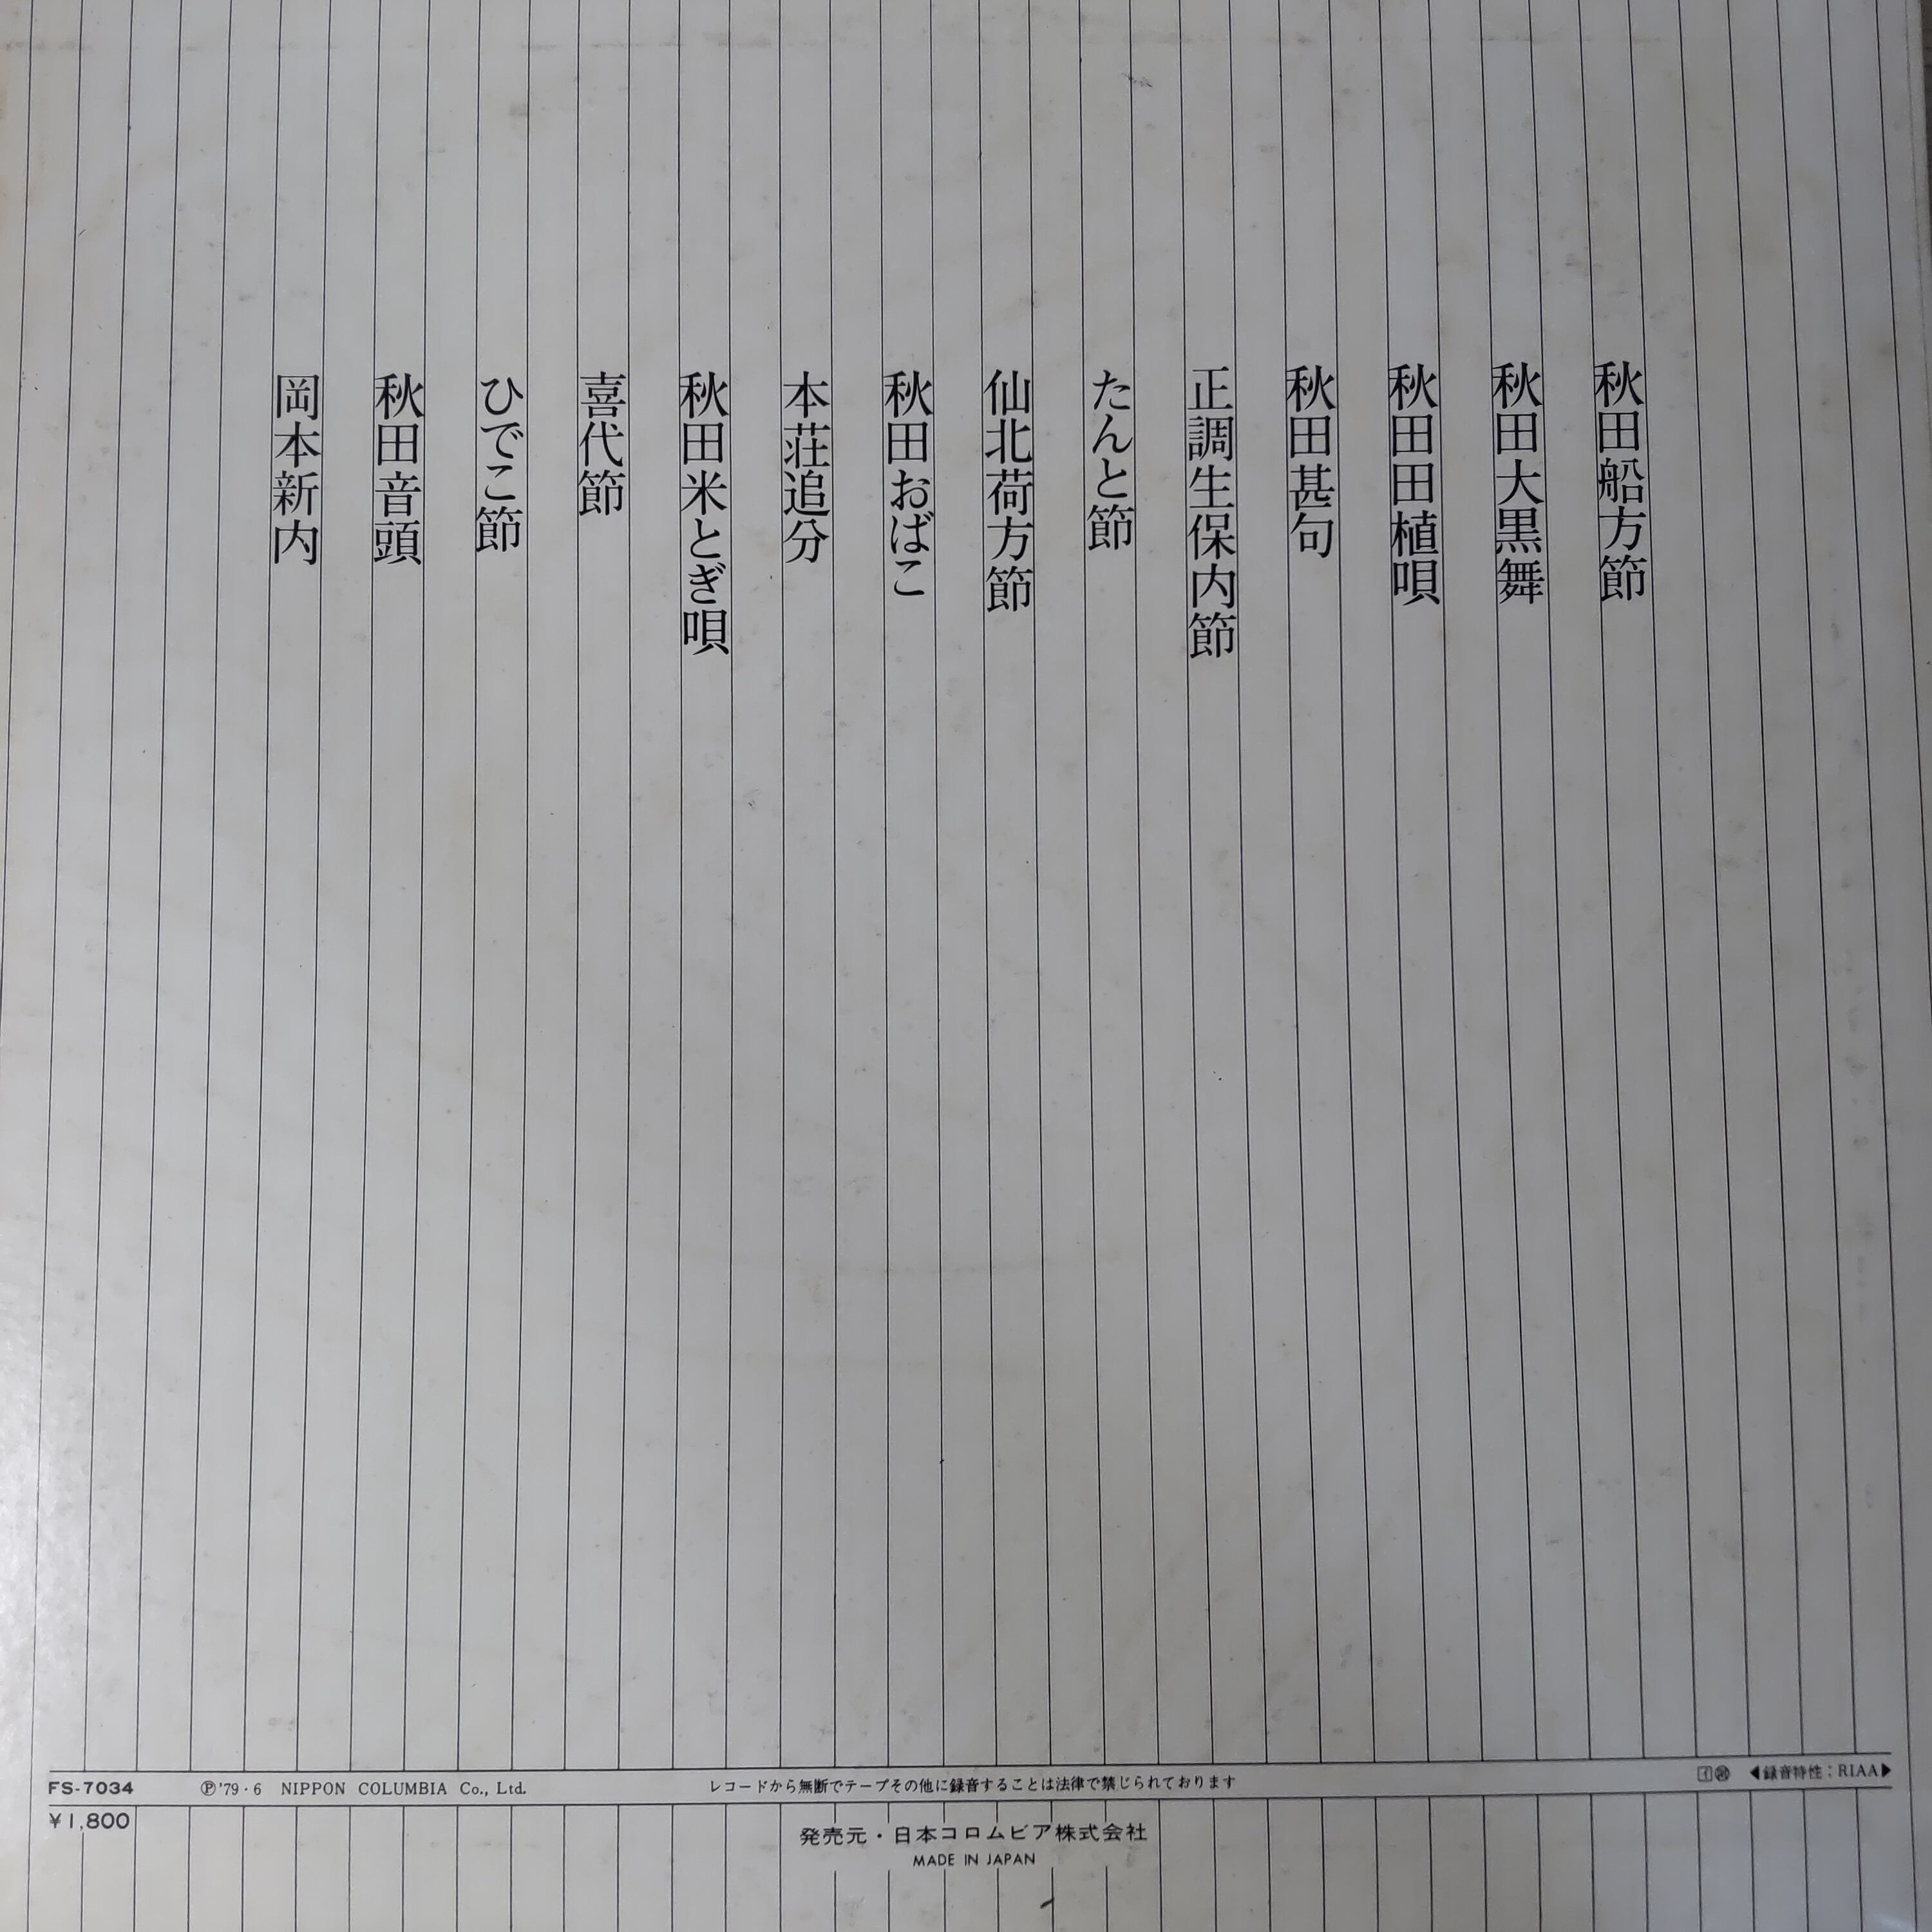 秋田船方節
秋田大黒舞
秋田田植唄
秋田甚句
正調生保内節
たんと節
仙北荷方節
秋田おばこ
本荘追分
秋田米とぎ唄
喜代節
ひでこ節
秋田音頭
岡本新内
FS-7034 Ⓟ'79・6 NIPPON COLUMBIA Co., Ltd. レコードから無断でテープその他に録音することは法律で禁じられております ◀録音特性：RIAA▶
¥1,800
発売元・日本コロムビア株式会社
MADE IN JAPAN